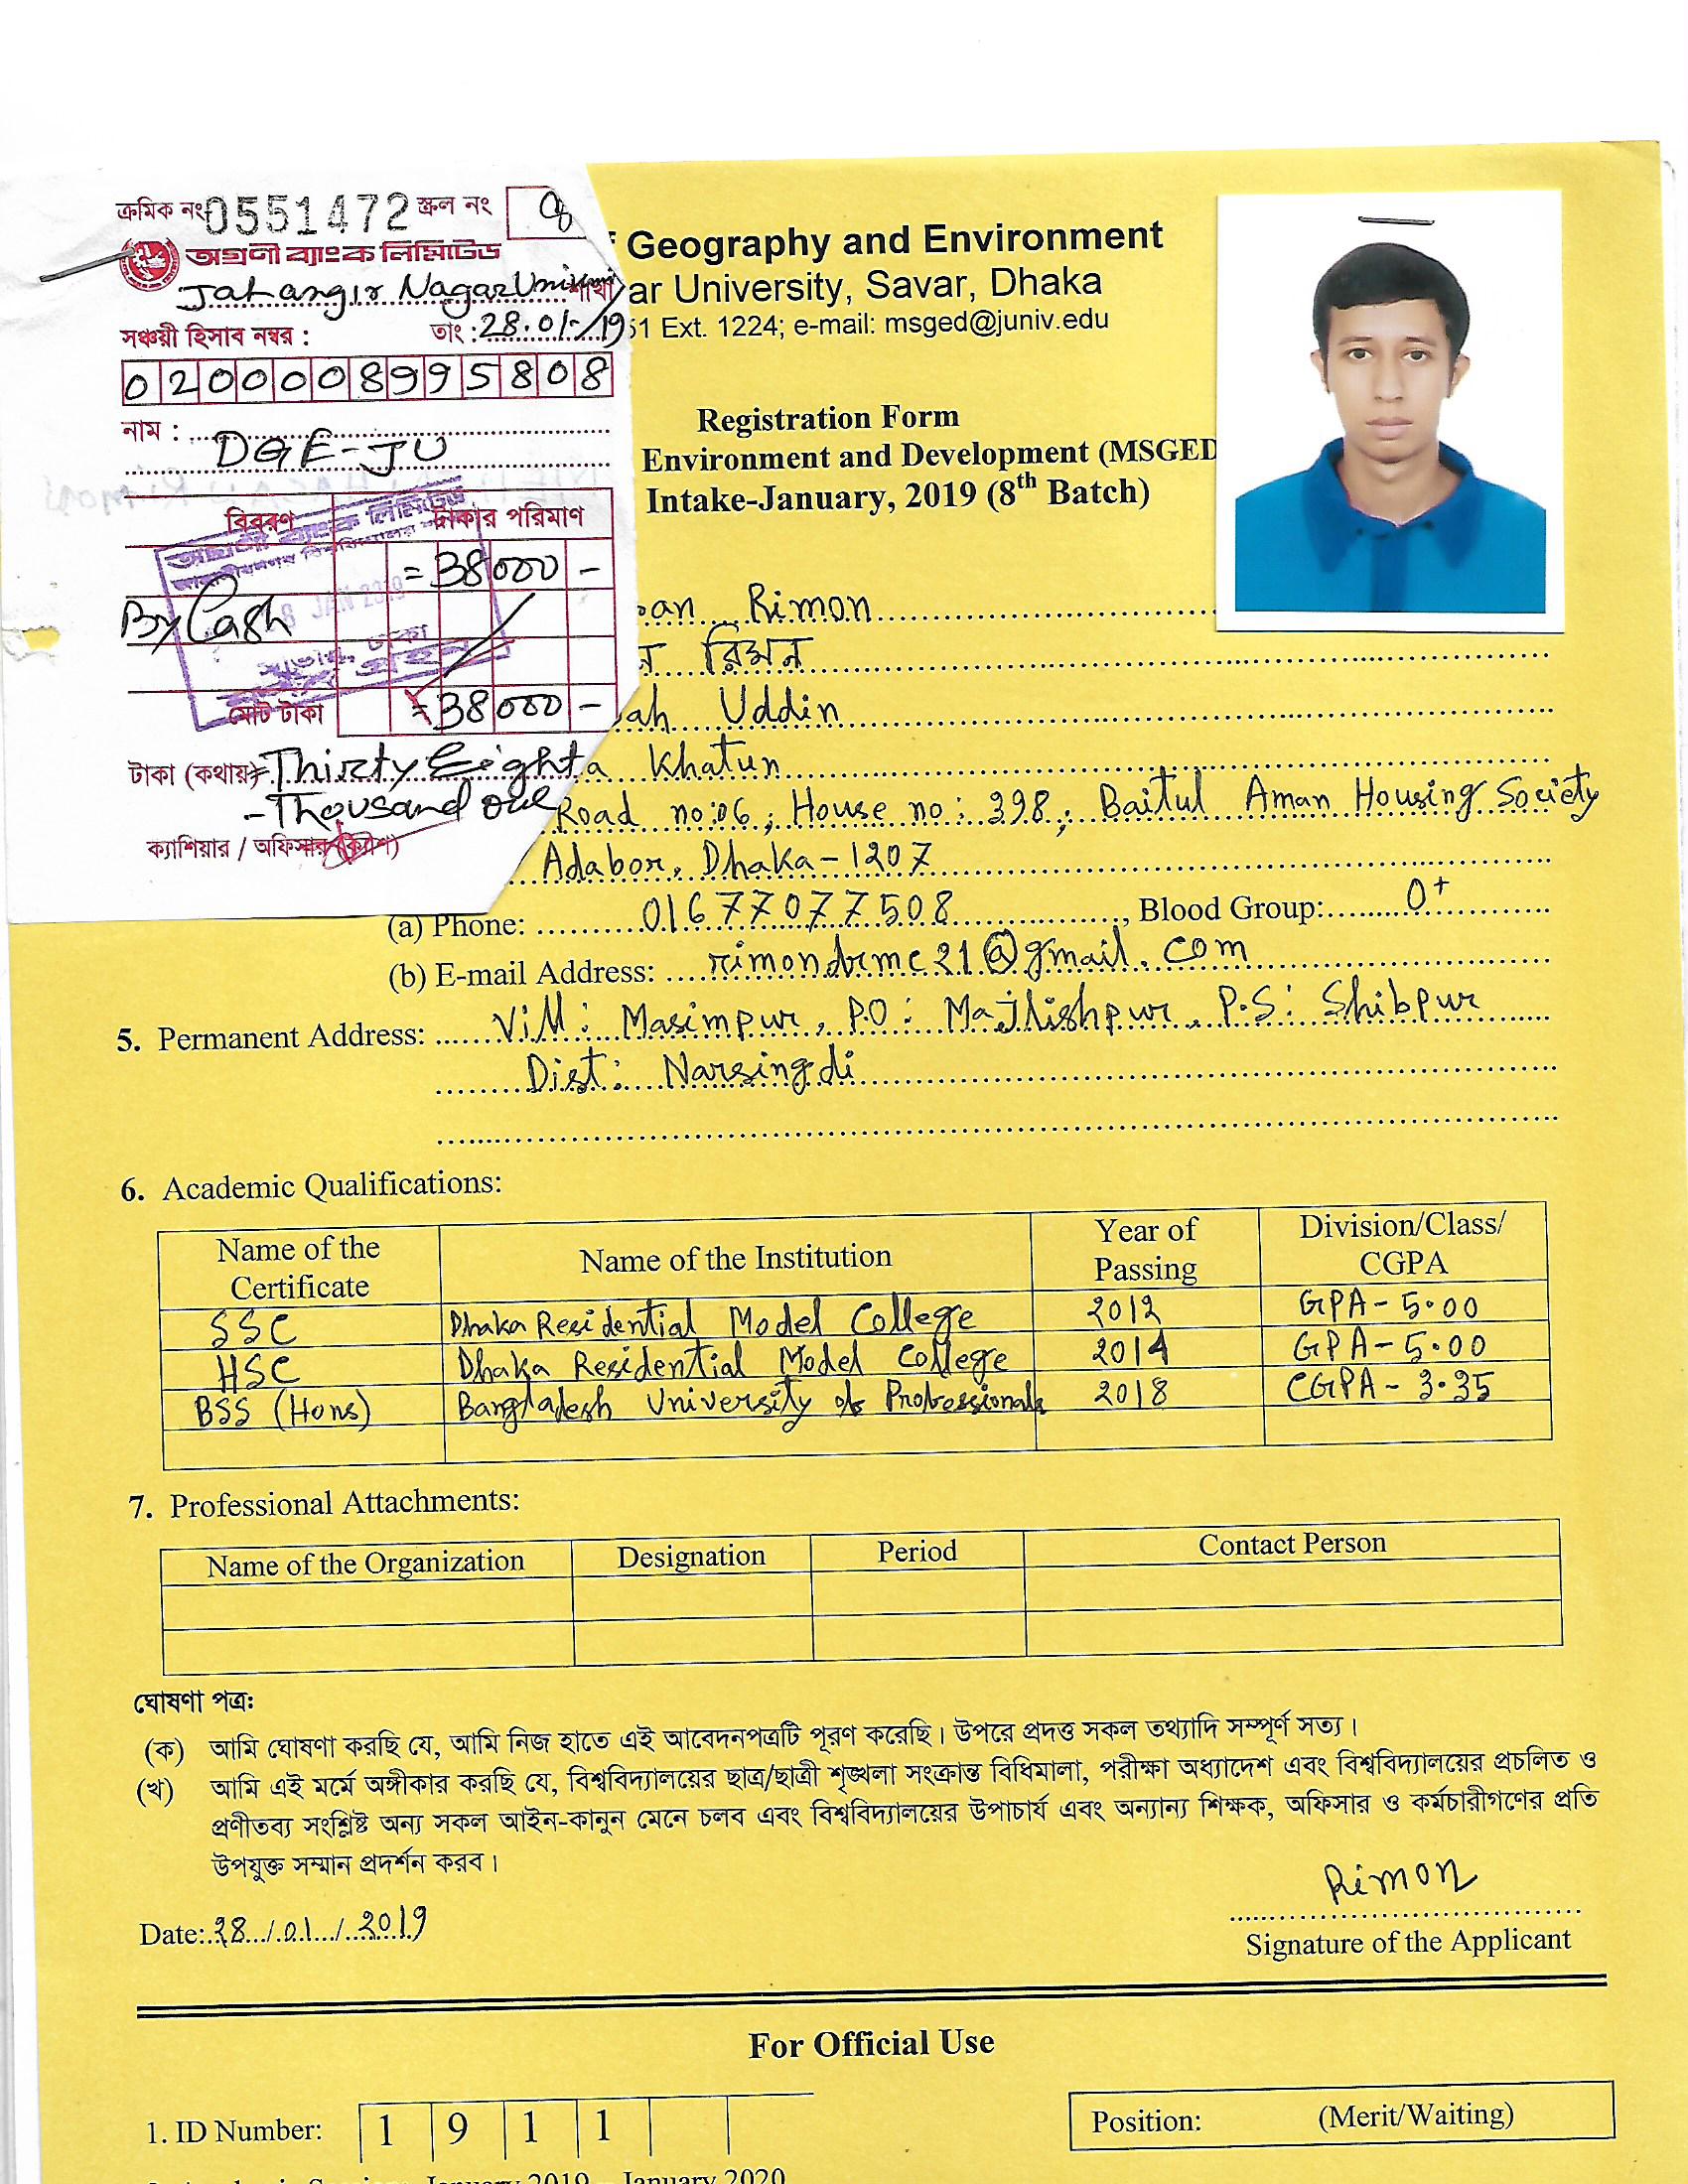 ক্রমিক নং 0551472 স্ক্রল নং
অগ্রণী ব্যাংক লিমিটেড
Jahangir Nagar University শাখা
সঞ্চয়ী হিসাব নম্বর : তাং : 28.01-19
0200008995808
নাম :
DGE-JU
বিবরণ টাকার পরিমাণ
= 38000 -
By Cash
মোট টাকা = 38000 -
টাকা (কথায়) Thirty Eight
- Thousand only
ক্যাশিয়ার / অফিসার (ক্যাশ)
অগ্রণী ব্যাংক লিমিটেড
JAN 2019
Geography and Environment
ar University, Savar, Dhaka
51 Ext. 1224; e-mail: msged@juniv.edu
Registration Form
Environment and Development (MSGED
Intake-January, 2019 (8th Batch)
an Rimon
ন রিমন
ah Uddin
a Khatun
Road no:06; House no: 398; Baitul Aman Housing Society
Adabor, Dhaka-1207
(a) Phone: 01677077508, Blood Group: O+
(b) E-mail Address: rimondrmc21@gmail.com
5. Permanent Address: Vill: Masimpur, P.O: Majlishpur, P.S: Shibpur
Dist: Narsingdi
6. Academic Qualifications:
Name of the Certificate Name of the Institution Year of Passing Division/Class/ CGPA
SSC Dhaka Residential Model College 2012 GPA-5.00
HSC Dhaka Residential Model College 2014 GPA-5.00
BSS (Hons) Bangladesh University of Professionals 2018 CGPA-3.35
7. Professional Attachments:
Name of the Organization Designation Period Contact Person
ঘোষণা পত্র:
(ক) আমি ঘোষণা করছি যে, আমি নিজ হাতে এই আবেদনপত্রটি পূরণ করেছি। উপরে প্রদত্ত সকল তথ্যাদি সম্পূর্ণ সত্য।
(খ) আমি এই মর্মে অঙ্গীকার করছি যে, বিশ্ববিদ্যালয়ের ছাত্র/ছাত্রী শৃঙ্খলা সংক্রান্ত বিধিমালা, পরীক্ষা অধ্যাদেশ এবং বিশ্ববিদ্যালয়ের প্রচলিত ও
প্রণীতব্য সংশ্লিষ্ট অন্য সকল আইন-কানুন মেনে চলব এবং বিশ্ববিদ্যালয়ের উপাচার্য এবং অন্যান্য শিক্ষক, অফিসার ও কর্মচারীগণের প্রতি
উপযুক্ত সম্মান প্রদর্শন করব।
Rimon
Date: 28/01/2019
Signature of the Applicant
For Official Use
1. ID Number: 1 9 1 1
Position: (Merit/Waiting)
January 2019 – January 2020